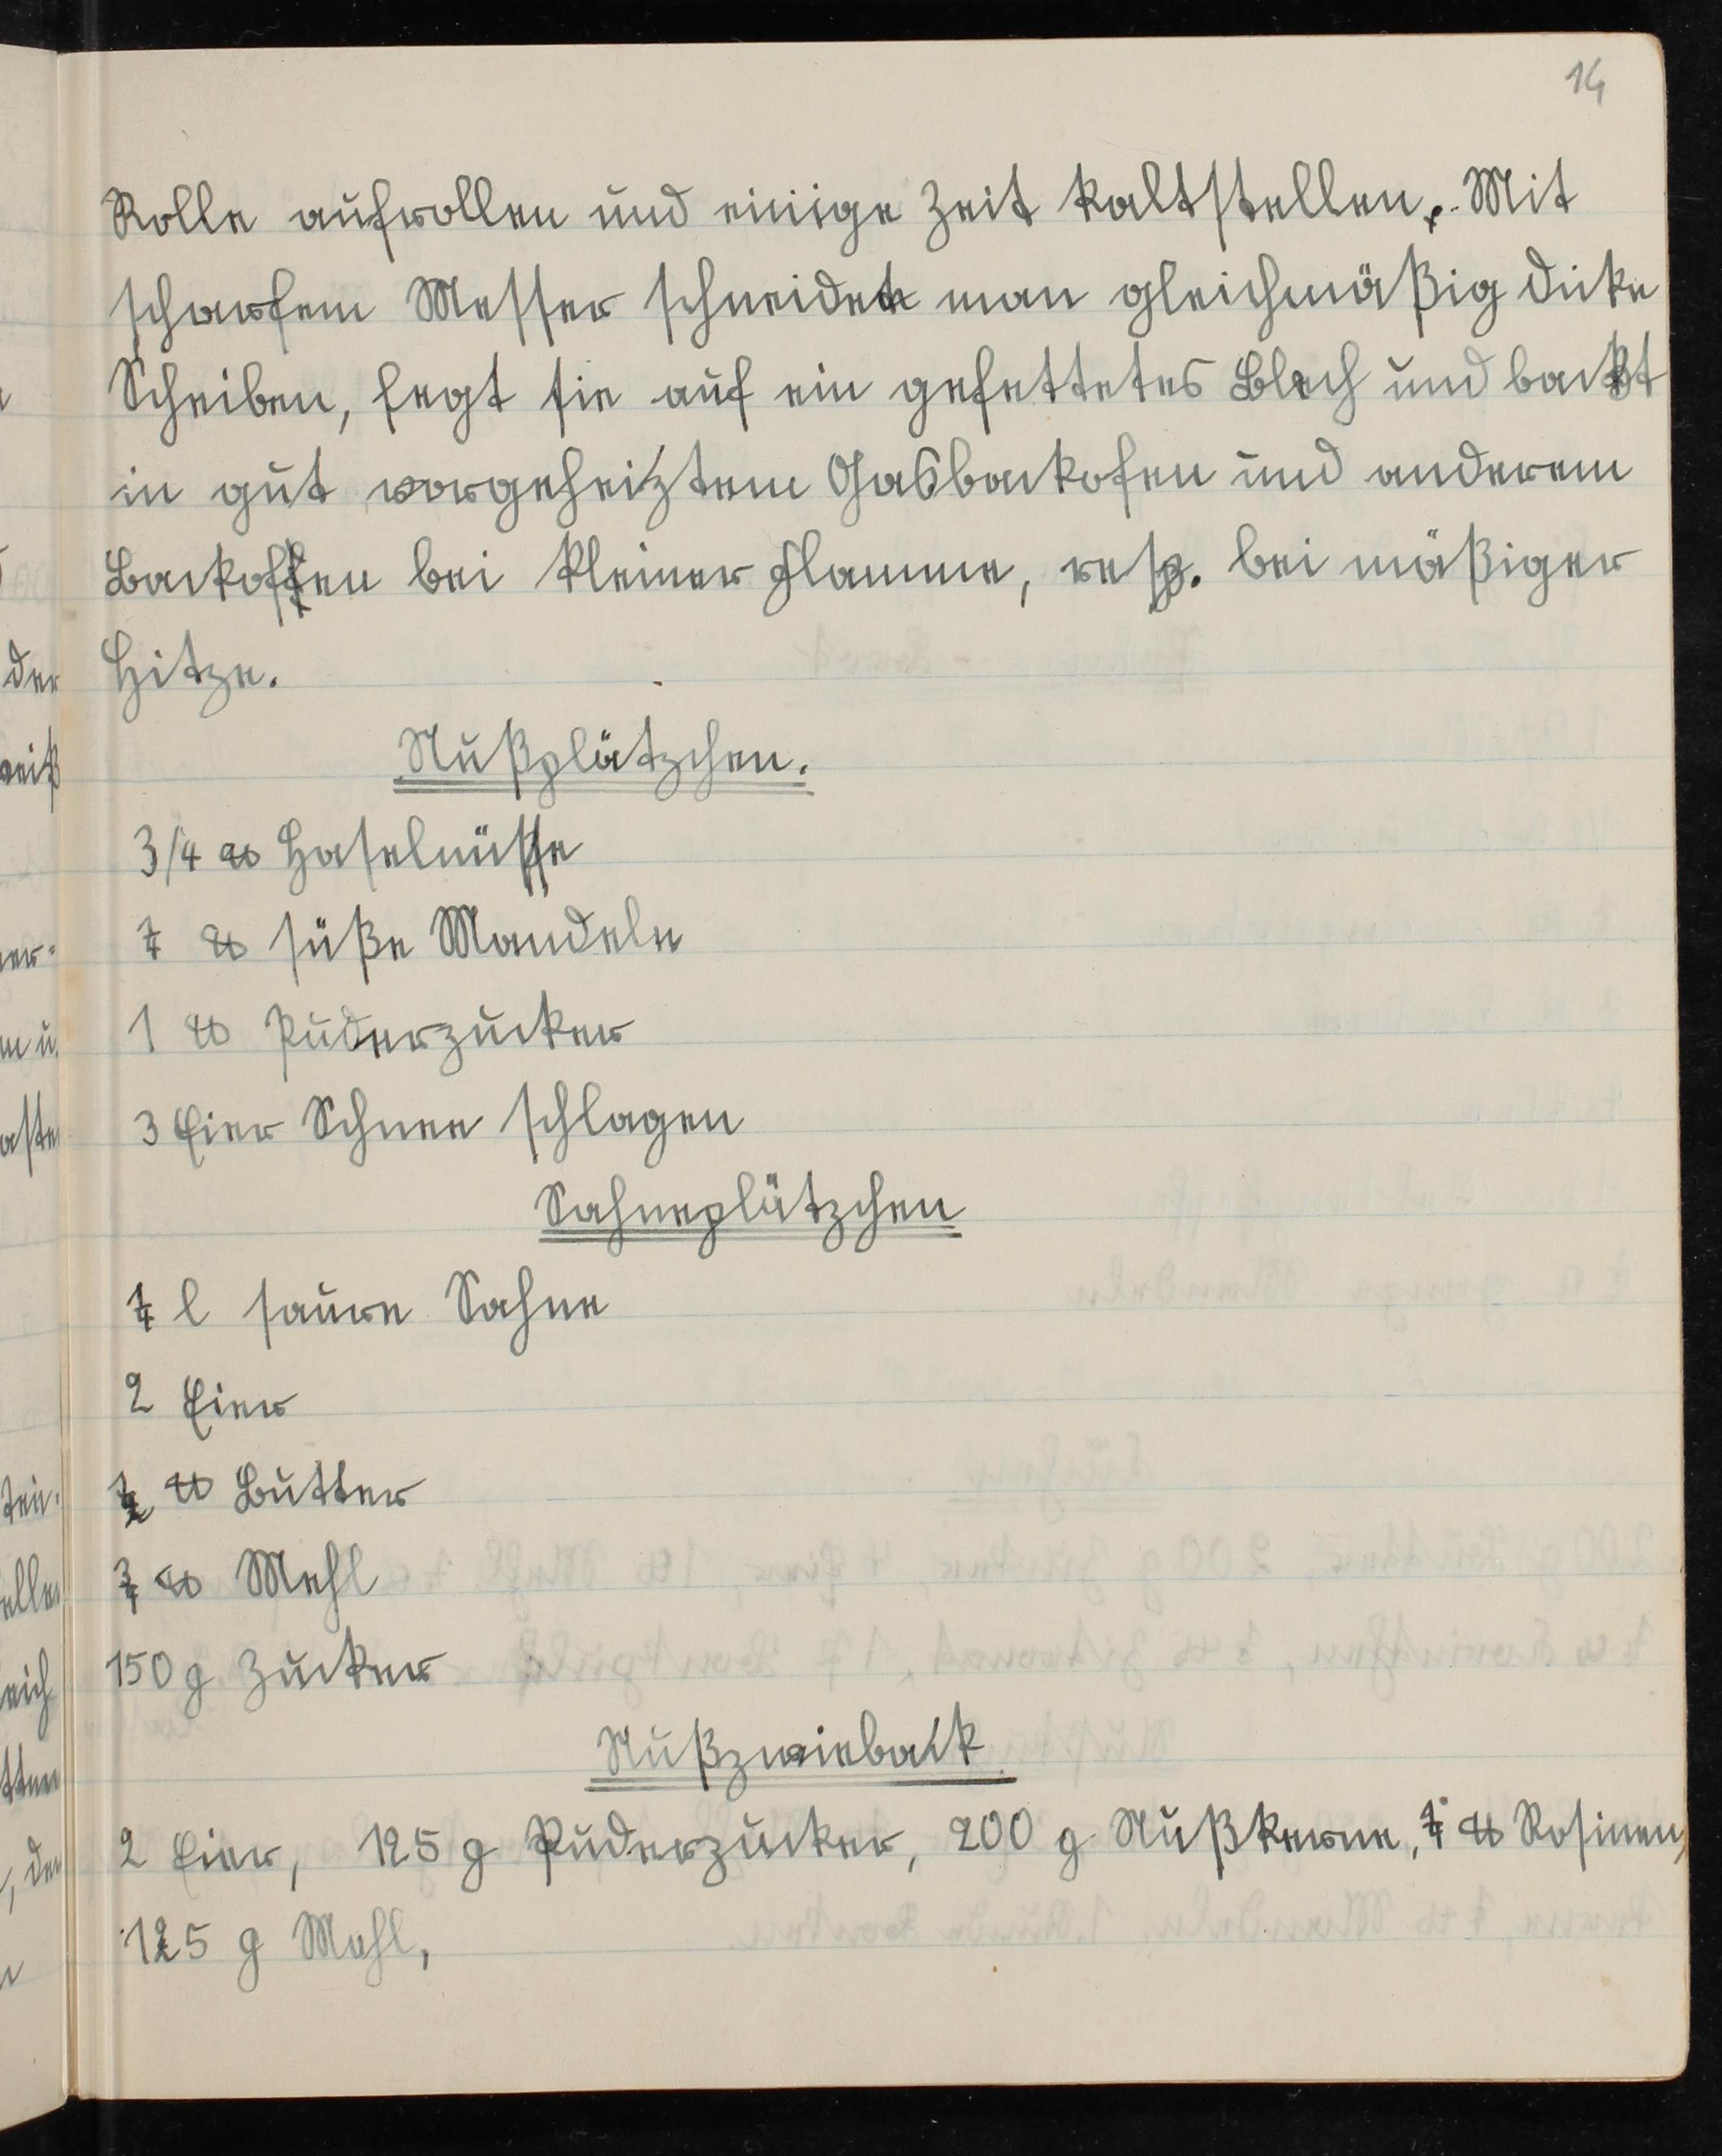 14
Rolle aufrollen und einige Zeit kaltstellen. Mit
scharfem Messer schneidet man gleichmäßig dicke
Scheiben, legt sie auf ein gefettetes Blech und backt
in gut vorgeheiztem Gasbackofen und anderem
Backofen bei kleiner Flamme, resp. bei mäßiger
Hitze.
Nußplätzchen.
3/4 ℔ Haselnüsse
1/4 ℔ süße Mandeln
1 ℔ Puderzucker
3 Eier Schnee schlagen
Sahneplätzchen
1/4 l saure Sahne
2 Eier
1/2 ℔ Butter
3/4 ℔ Mehl
150 g Zucker
Nußzwieback
2 Eier, 125 g Puderzucker, 200 g Nußkerne, 1/4 ℔ Rosinen,
125 g Mehl,